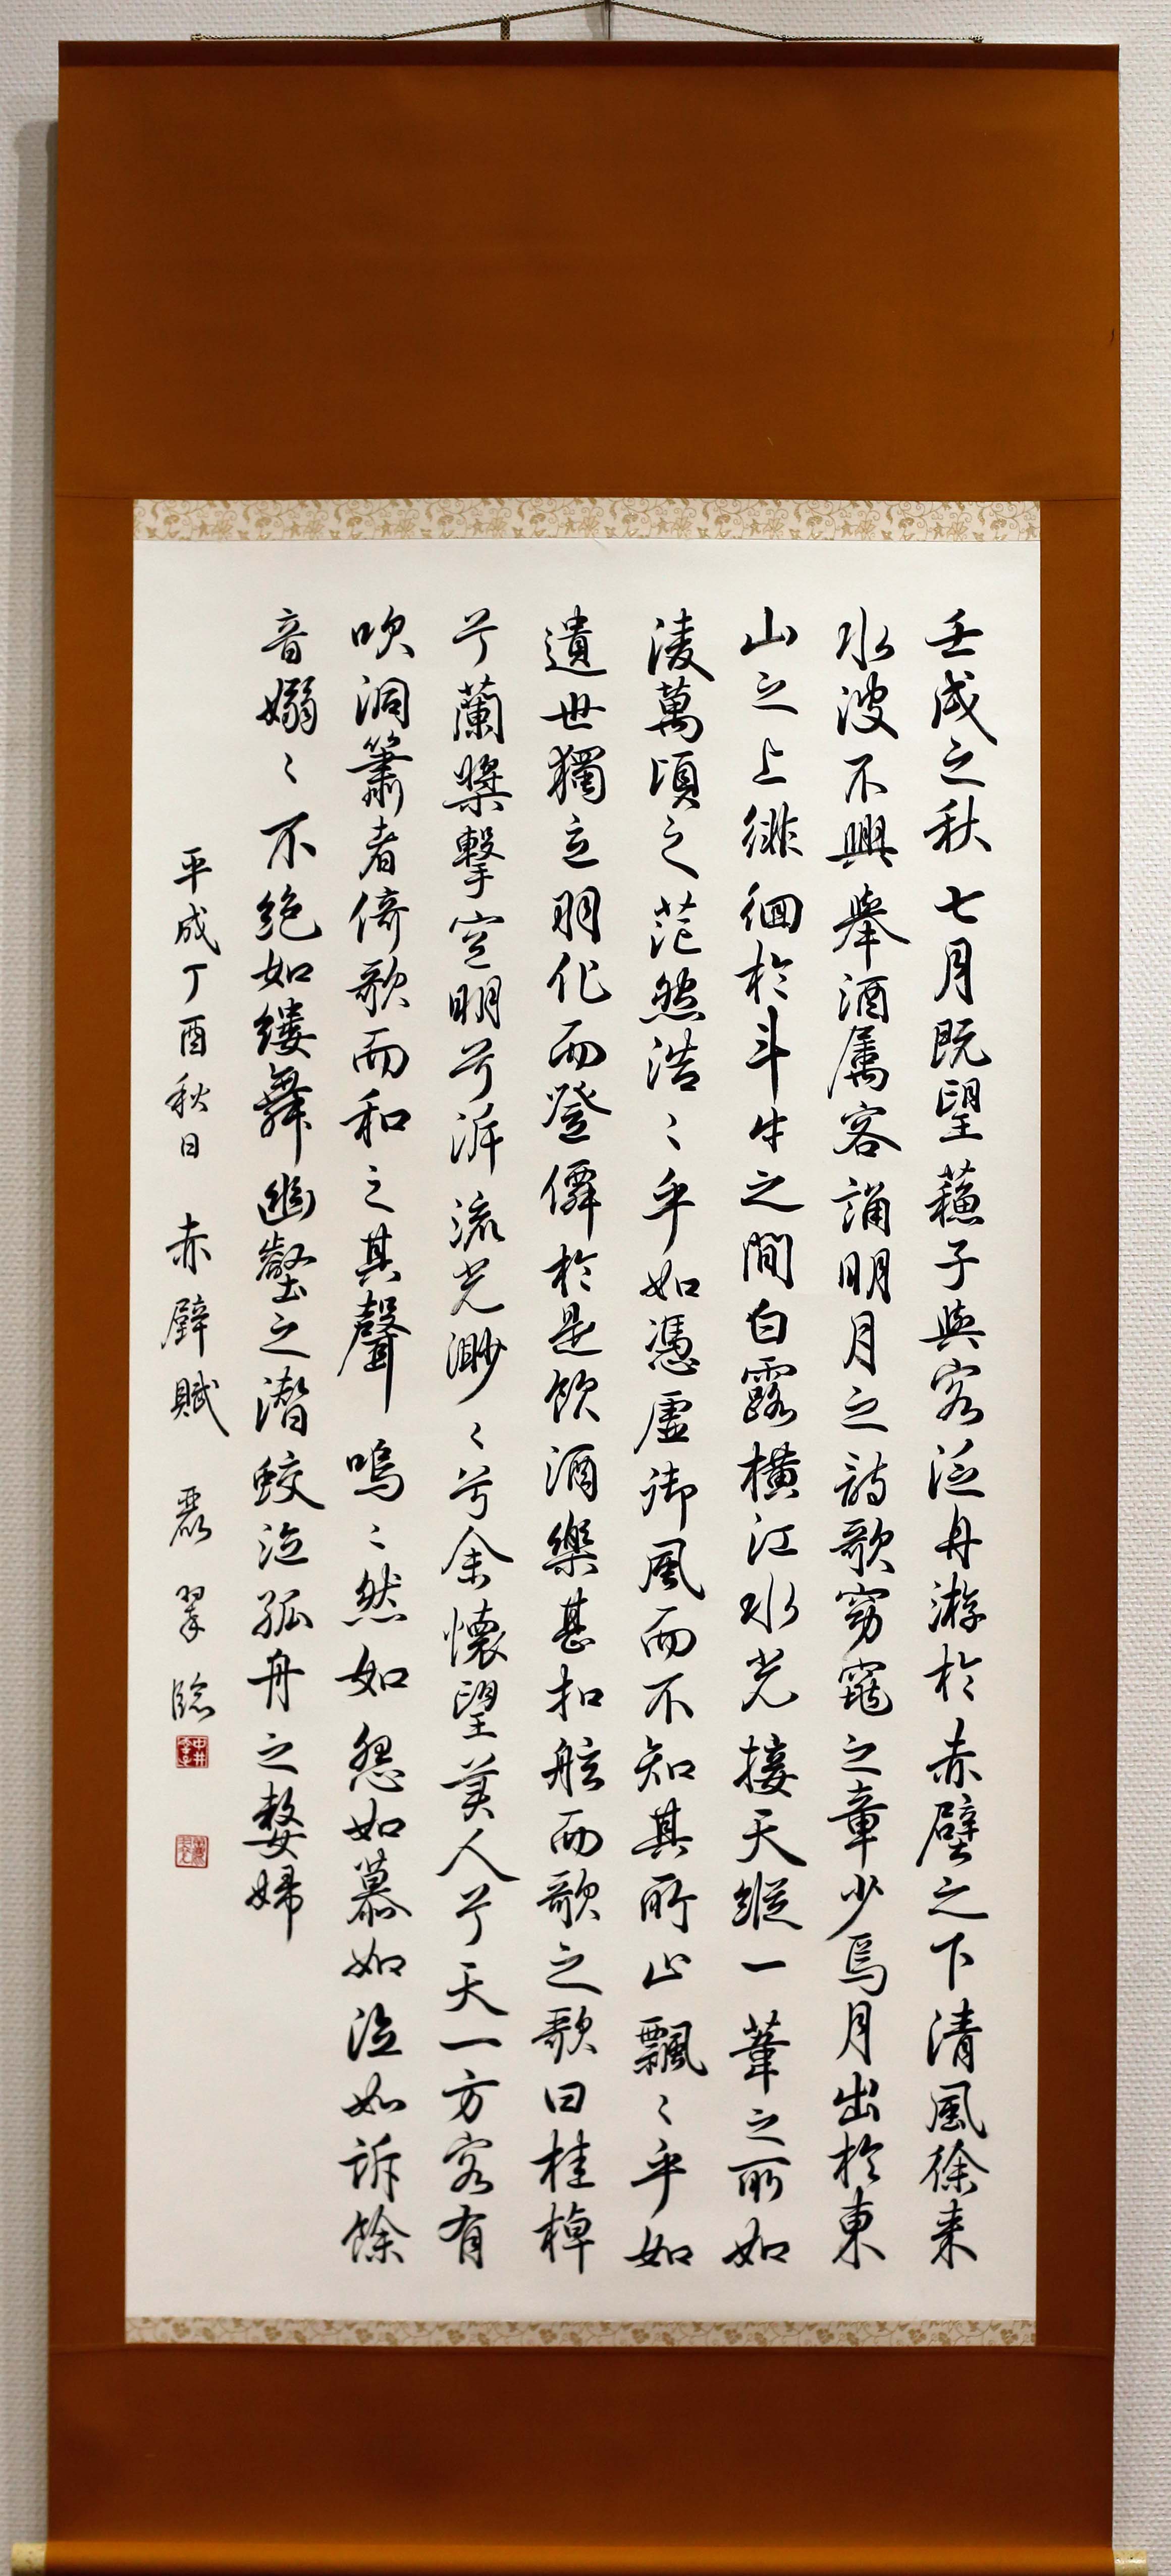 壬戌之秋七月既望蘓子與客泛舟游於赤壁之下清風徐来
水波不興舉酒属客誦明月之詩歌窈窕之章少焉月出於東
山之上徘徊於斗牛之間白露橫江水光接天縱一葦之所如
淩萬頃之茫然浩〻乎如馮虛御風而不知其所止飄〻乎如
遺世獨立羽化而登僊於是飲酒樂甚扣舷而歌之歌曰桂棹
兮蘭槳擊空明兮泝流光渺〻兮余懷望美人兮天一方客有
吹洞簫者倚歌而和之其聲嗚〻然如怨如慕如泣如訴餘
音嫋〻不絕如縷舞幽壑之潛蛟泣孤舟之嫠婦
平成丁酉秋日 赤壁賦 麗翠臨